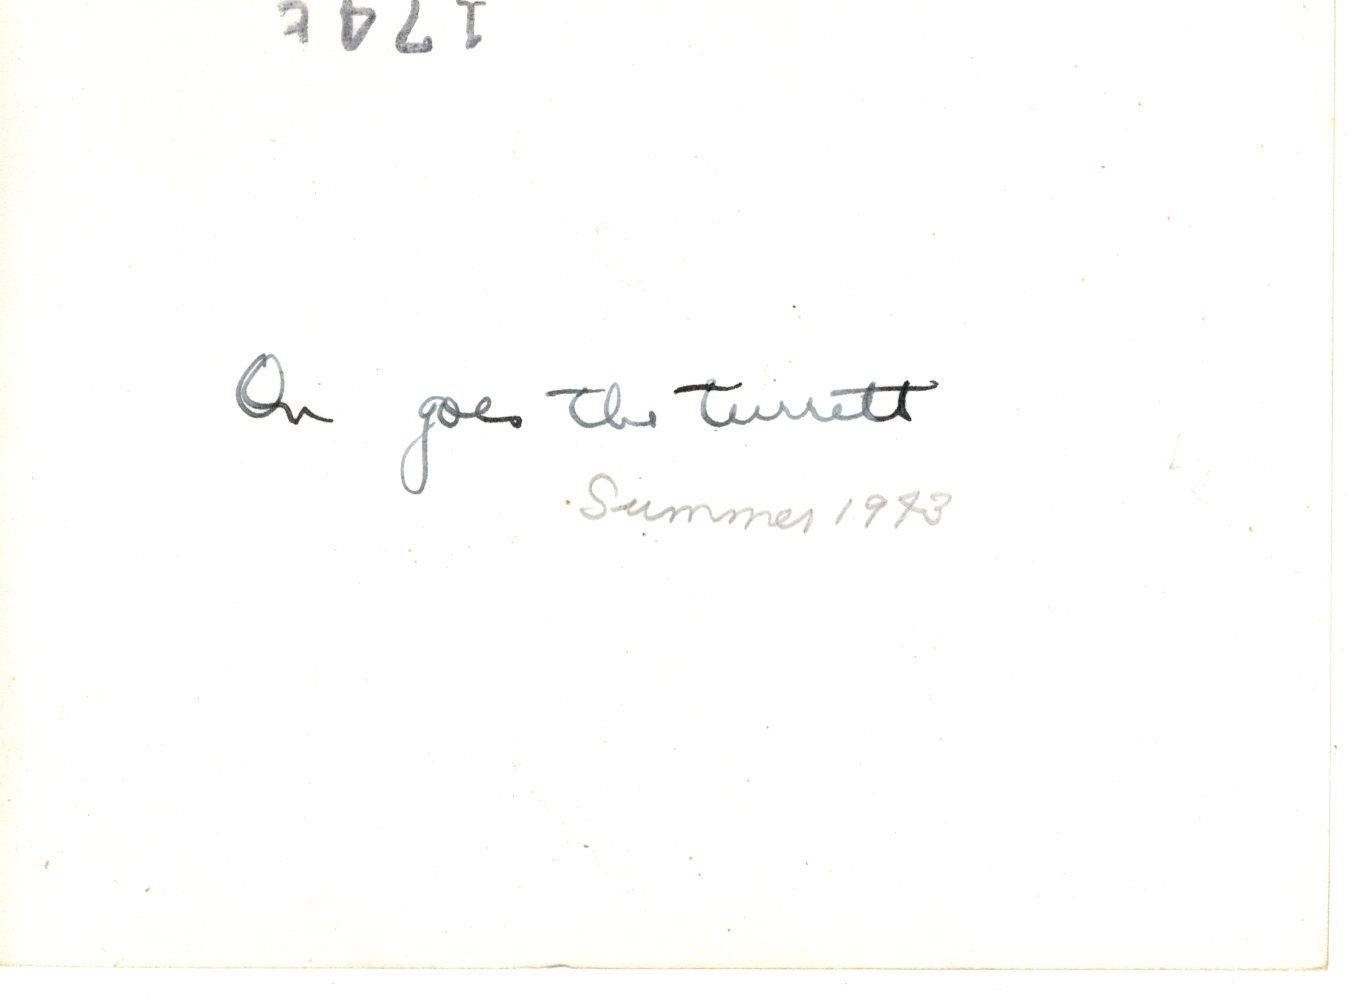 On goes the turrett
Summer 1943